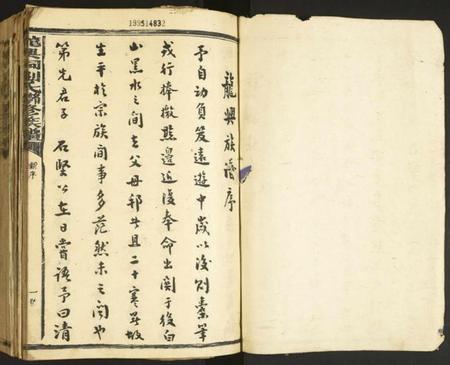 199514832
龍興族譜序
予自動負笈遠遊中歲以後則橐筆
戎行捧檄邊追後奉命出關于役白
山黑水之間去父母邦廿且二十寒暑故
生平於宗族間事多茫然未之聞也
第先君子 石堅公在日嘗語予曰清
新序